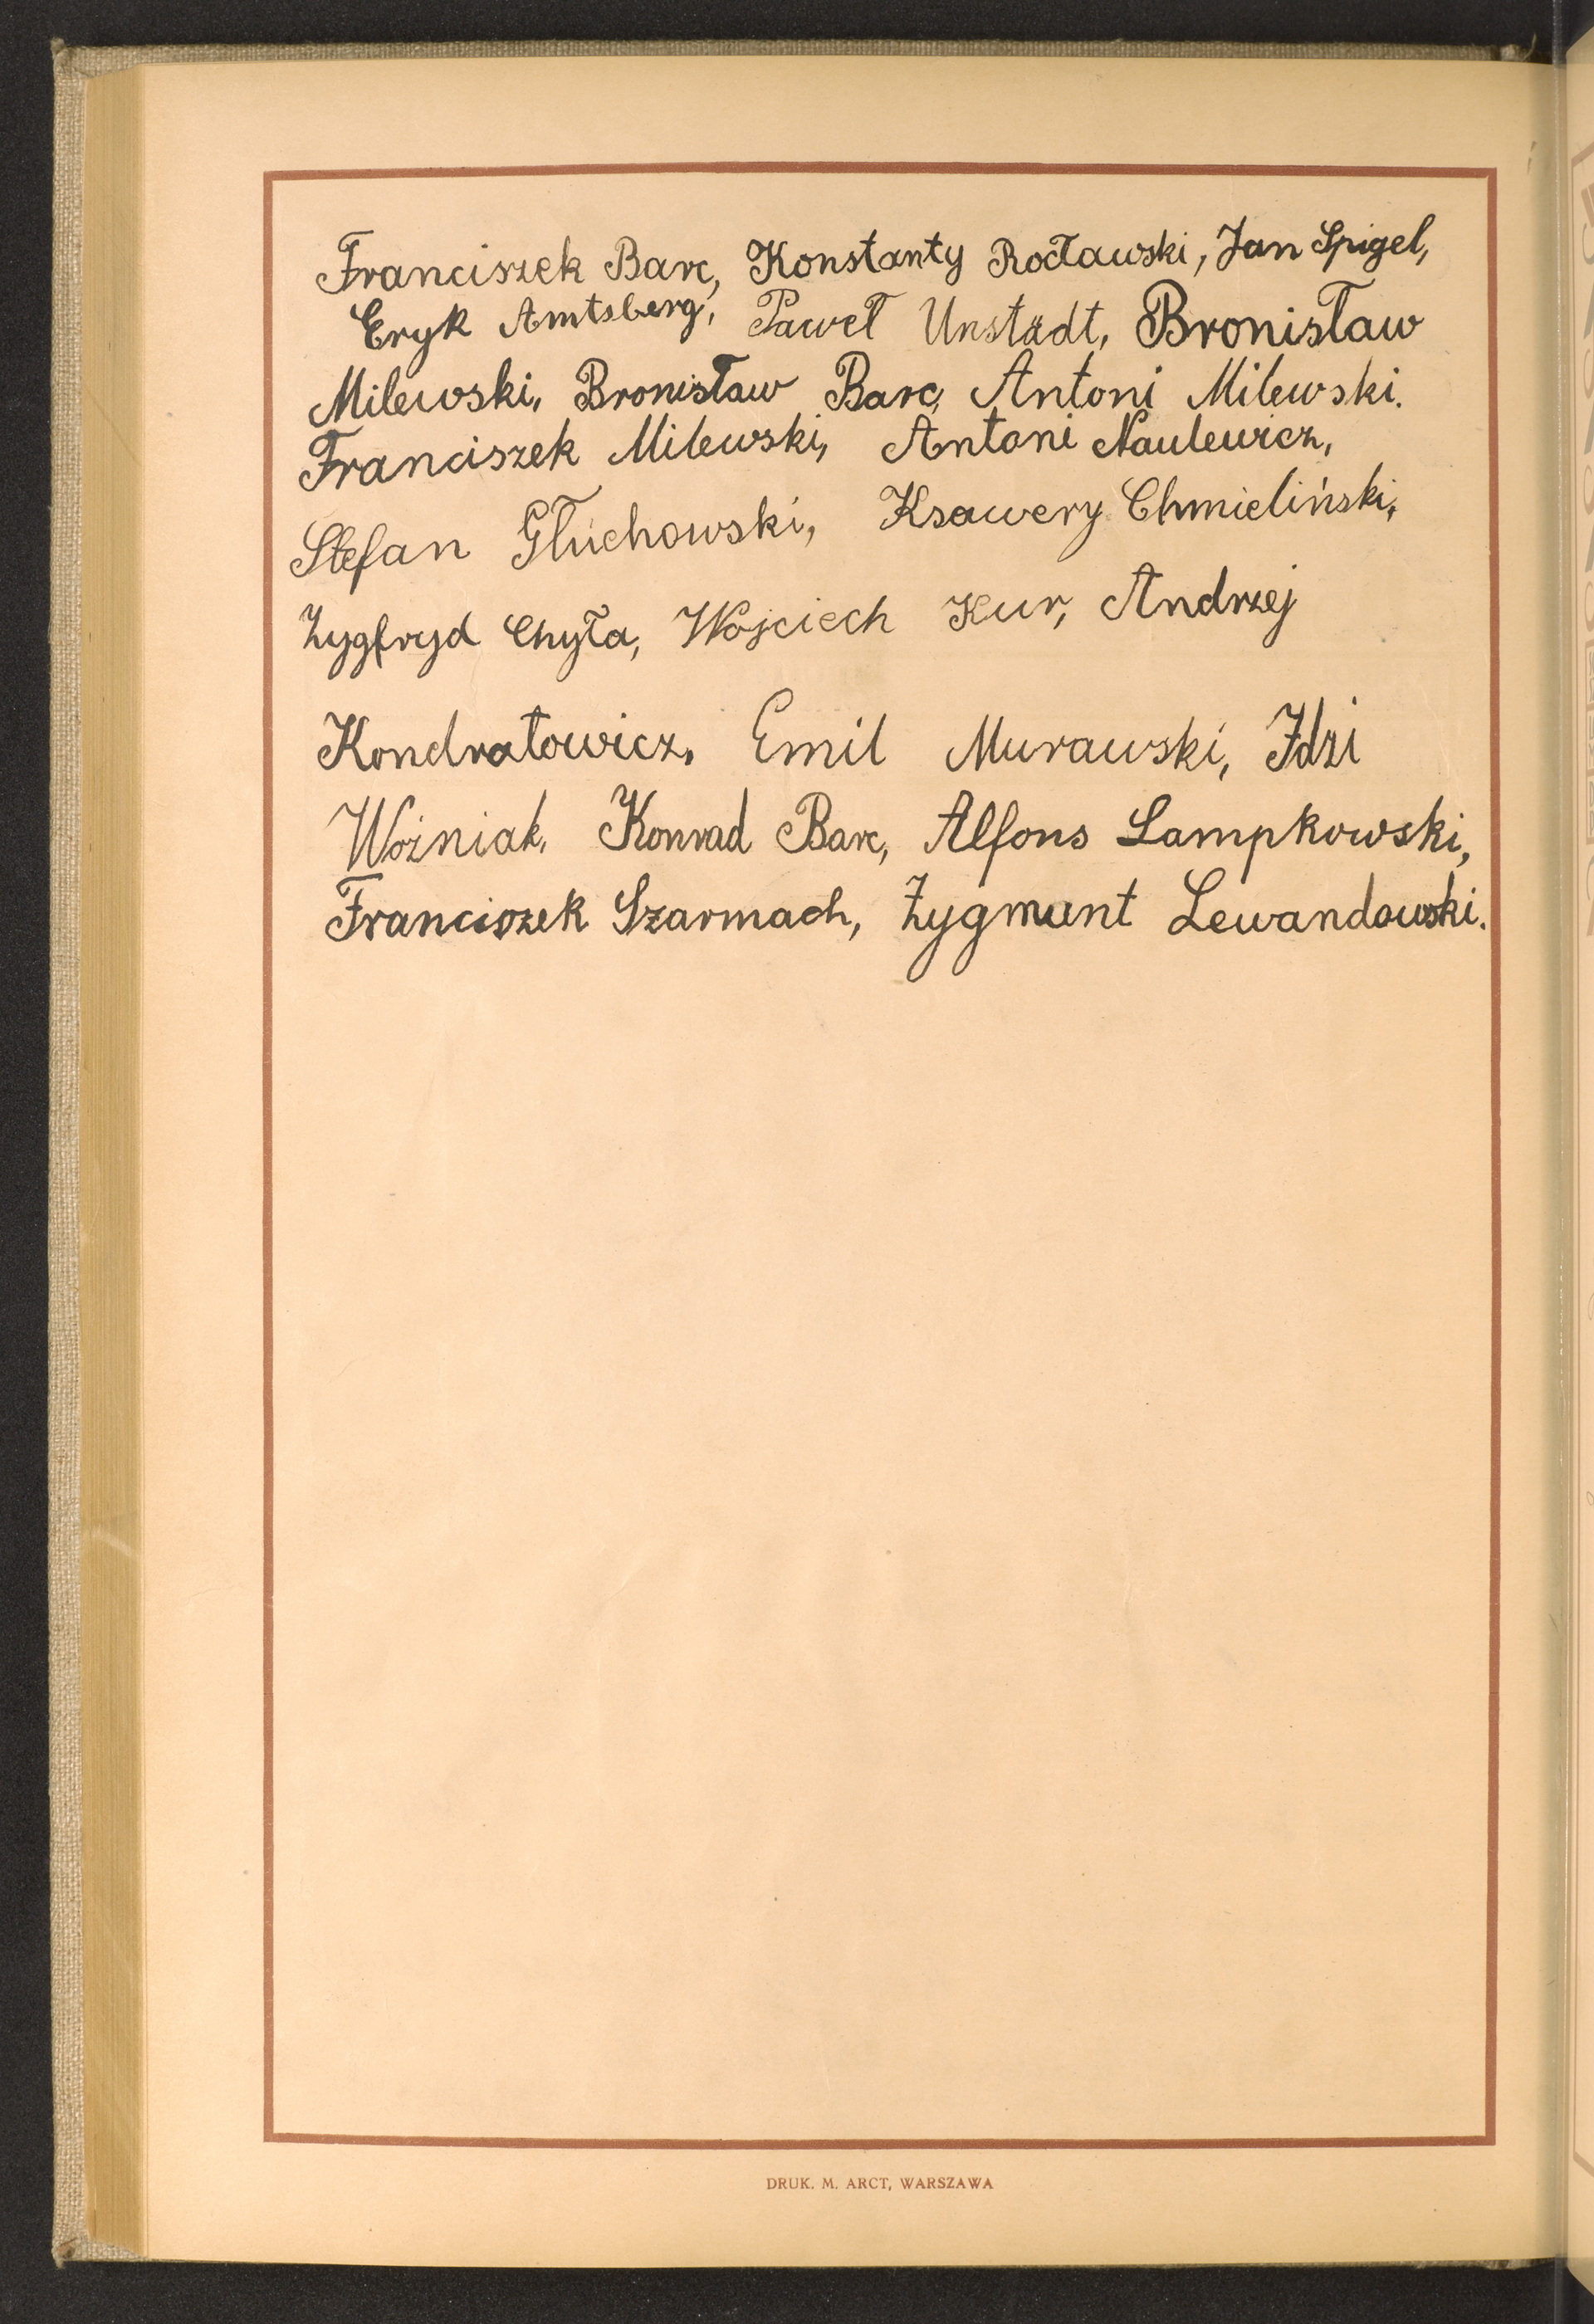 Franciszek Barc, Konstanty Rocławski, Jan Spigel,
Eryk Amtsberg, Paweł Unstädt, Bronisław
Milewski, Bronisław Barc, Antoni Milewski.
Franciszek Milewski, Antoni Naulewicz,
Stefan Głuchowski, Ksawery Chmieliński,
Zygfryd Chyła, Wojciech Kur, Andrzej
Kondratowicz, Emil Murawski, Idzi
Woźniak, Konrad Barc, Alfons Lampkowski,
Franciszek Szarmach, Zygmunt Lewandowski.
DRUK. M. ARCT, WARSZAWA